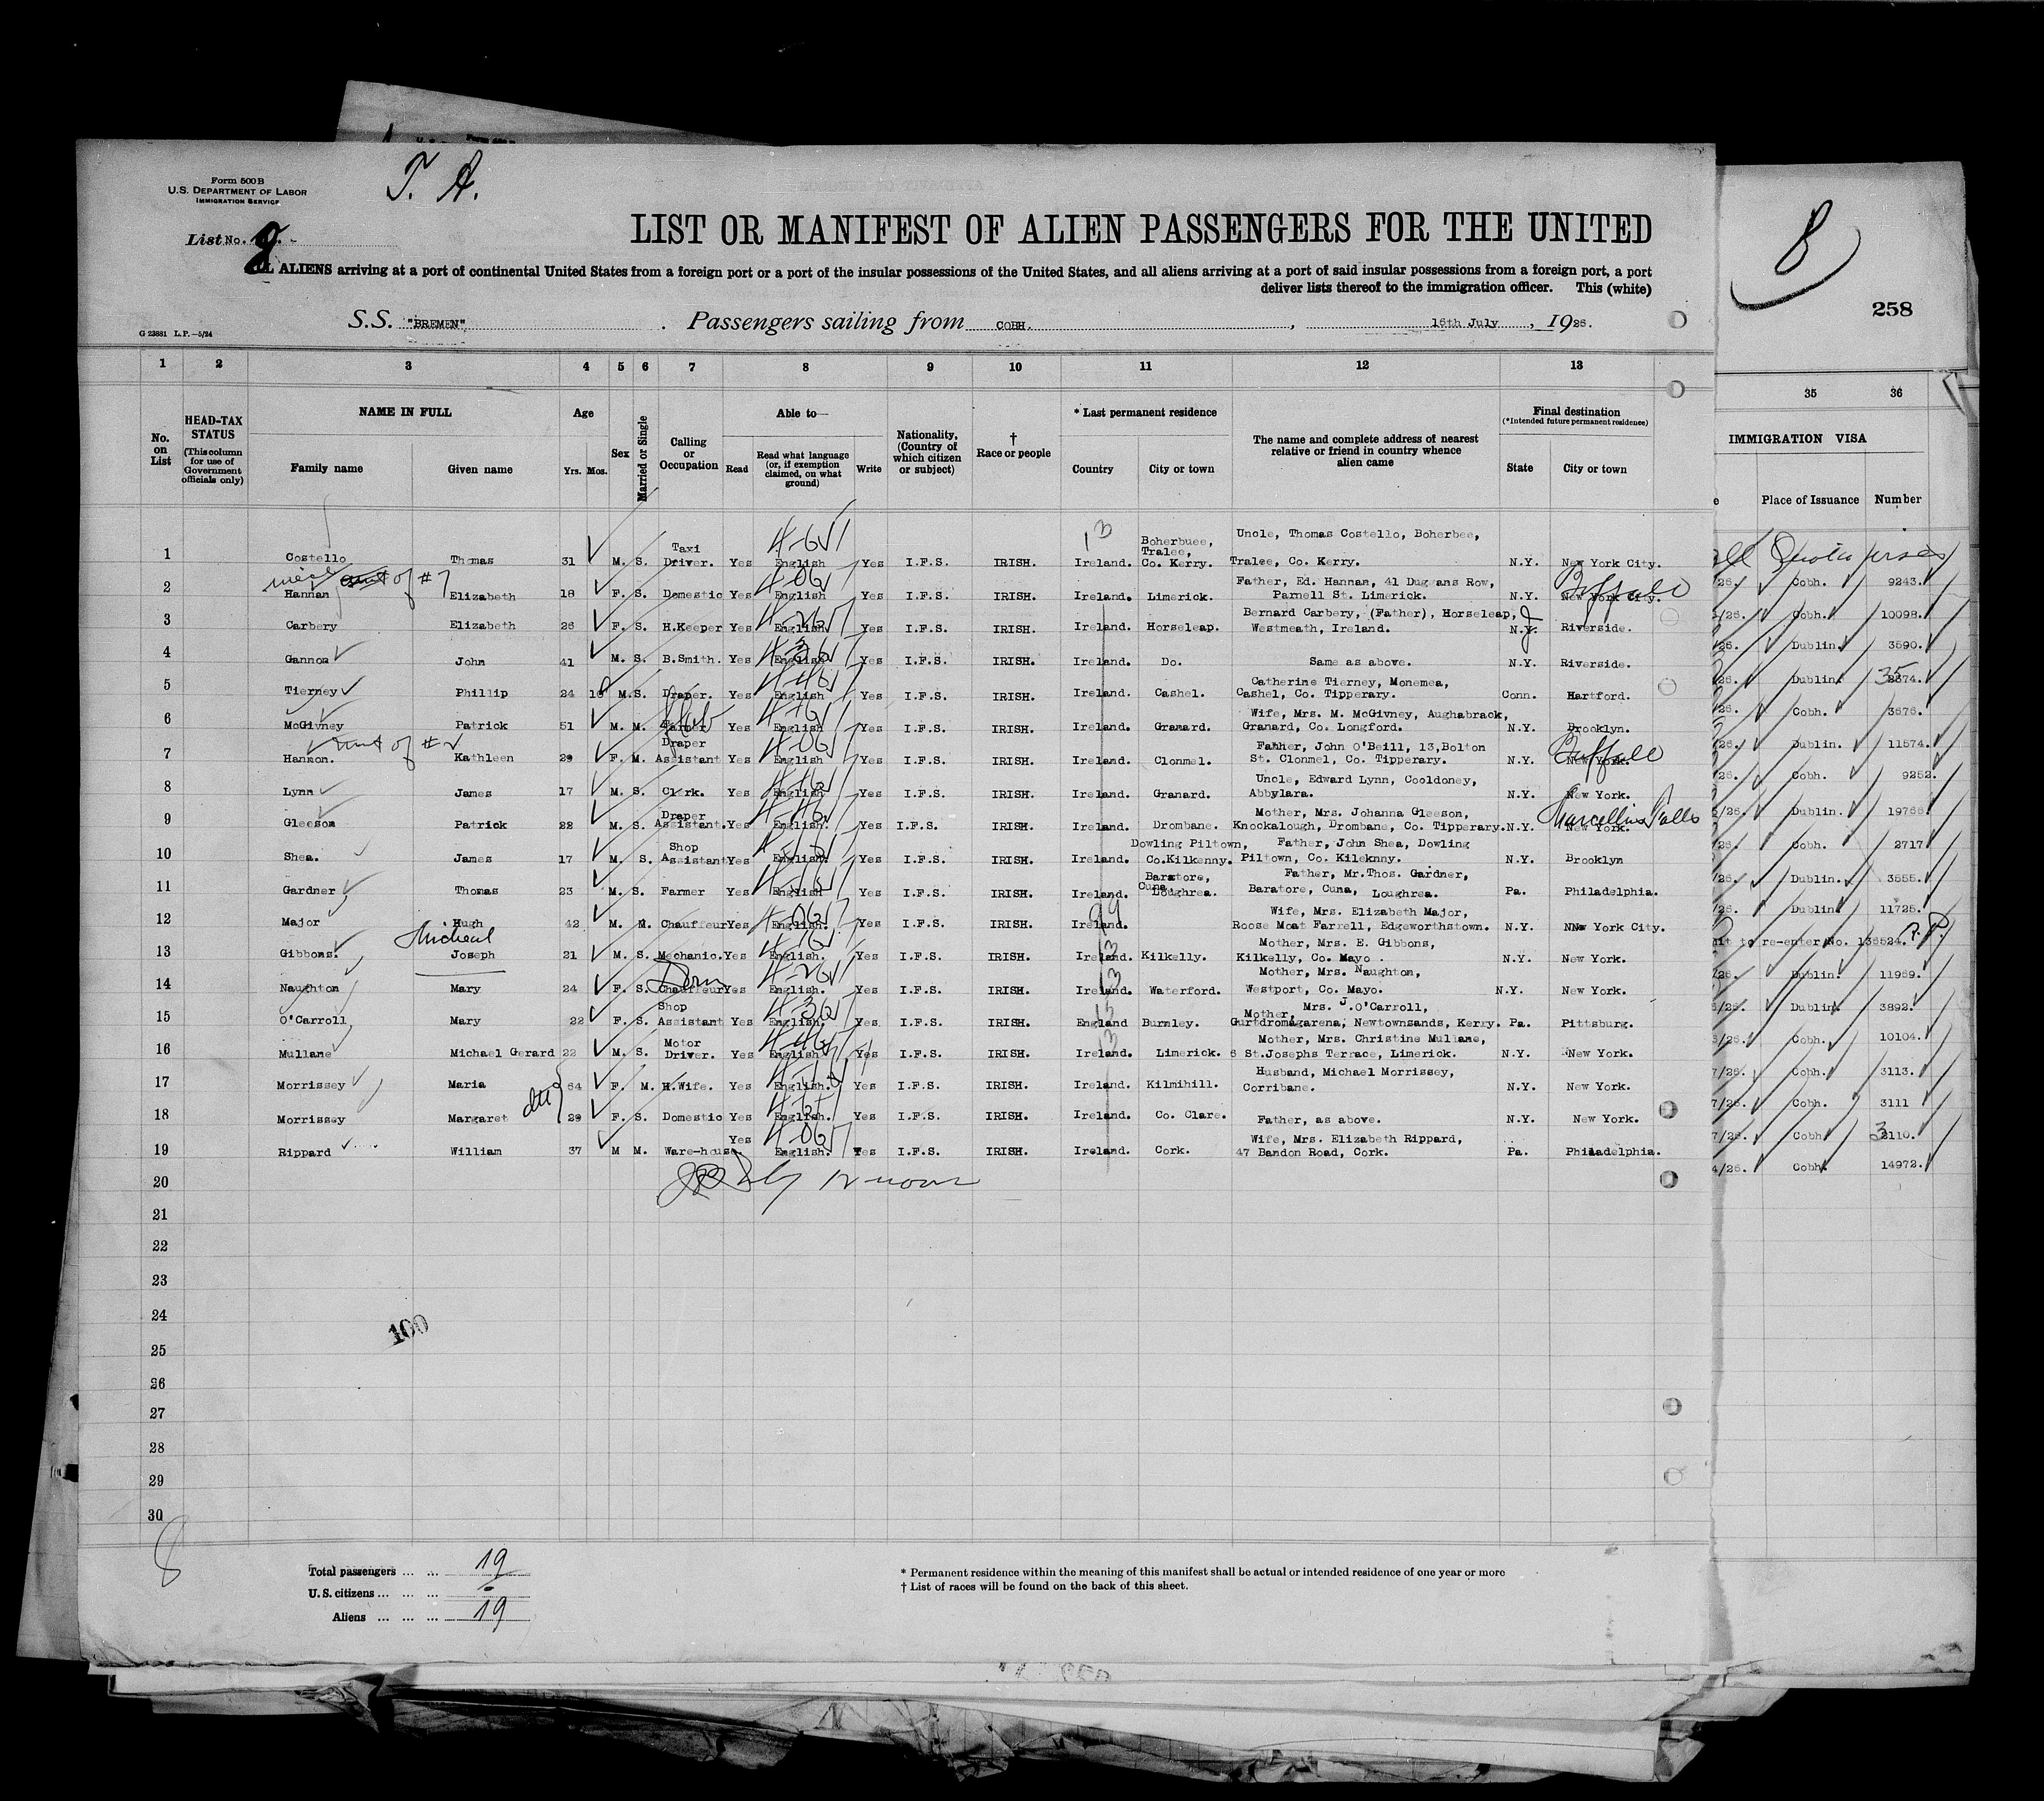 Form 500B
U.S. DEPARTMENT OF LABOR
IMMIGRATION SERVICE
T. A.
List No. 8
LIST OR MANIFEST OF ALIEN PASSENGERS FOR THE UNITED
ALL ALIENS arriving at a port of continental United States from a foreign port or a port of the insular possessions of the United States, and all aliens arriving at a port of said insular possessions from a foreign port, a port
deliver lists thereof to the immigration officer. This (white)
8
258
G 23881 L.P.—5/24
S.S. "BREMEN" . Passengers sailing from COBH. , 16th July , 1926.
1 2 3 4 5 6 7 8 9 10 11 12 13 35 36
No. on List
HEAD-TAX STATUS (This column for use of Government officials only)
NAME IN FULL Family name Given name
Age Yrs. Mos.
Sex
Married or Single
Calling or Occupation
Able to— Read Read what language (or, if exemption claimed, on what ground) Write
Nationality, (Country of which citizen or subject)
† Race or people
* Last permanent residence Country City or town
The name and complete address of nearest relative or friend in country whence alien came
Final destination (*Intended future permanent residence) State City or town
IMMIGRATION VISA Place of Issuance Number
1 Costello Thomas 31 M. S. Taxi Driver. Yes English Yes I.F.S. IRISH. Ireland. Boherbuee, Tralee, Co. Kerry. Uncle, Thomas Costello, Boherbee, Tralee, Co. Kerry. N.Y. New York City.
niece aunt of #7
2 Hannan Elizabeth 18 F. S. Domestic Yes English Yes I.F.S. IRISH. Ireland. Limerick. Father, Ed. Hannan, 41 Duggans Row, Parnell St. Limerick. N.Y. New York City. Buffalo
3 Carbery Elizabeth 26 F. S. H.Keeper Yes English Yes I.F.S. IRISH. Ireland. Horseleap. Bernard Carbery, (Father), Horseleap, Westmeath, Ireland. N.Y. J Riverside.
4 Gannon John 41 M. S. B.Smith. Yes English Yes I.F.S. IRISH. Ireland. Do. Same as above. N.Y. Riverside.
5 Tierney Phillip 24 10 M.S. Draper. Yes English Yes I.F.S. IRISH. Ireland. Cashel. Catherine Tierney, Monemea, Cashel, Co. Tipperary. Conn. Hartford.
6 McGivney Patrick 51 M. M. Farmer Yes English Yes I.F.S. IRISH. Ireland. Granard. Wife, Mrs. M. McGivney, Aughabrack, Granard, Co. Longford. N.Y. Brooklyn.
aunt of #2
7 Hannon. Kathleen 29 F. M. Draper Assistant Yes English Yes I.F.S. IRISH. Ireland. Clonmel. Father, John O'Beill, 13,Bolton St. Clonmel, Co. Tipperary. N.Y. New York. Buffalo
8 Lynn James 17 M. S. Clerk. Yes English Yes I.F.S. IRISH. Ireland. Granard. Uncle, Edward Lynn, Cooldoney, Abbylara. N.Y. New York.
9 Gleeson Patrick 22 M. S. Draper Assistant. Yes English. Yes I.F.S. IRISH. Ireland. Drombane. Mother, Mrs. Johanna Gleeson, Knockalough, Drombane, Co. Tipperary. N.Y. New York. Marcellus Falls
10 Shea. James 17 M. S. Shop Assistant Yes English. Yes I.F.S. IRISH. Ireland. Dowling Piltown, Co.Kilkenny. Father, John Shea, Dowling Piltown, Co. Kileknny. N.Y. Brooklyn
11 Gardner Thomas 23 M. S. Farmer Yes English Yes I.F.S. IRISH. Ireland. Baratore, Cuna, Loughrea. Father, Mr.Thos. Gardner, Baratore, Cuna, Loughrea. Pa. Philadelphia.
12 Major Hugh 42 M. M. Chauffeur Yes English. Yes I.F.S. IRISH. Ireland. 99 Wife, Mrs. Elizabeth Major, Roose Moat Farrell, Edgeworthstown. N.Y. New York City.
Micheal
13 Gibbons. Joseph 21 M. S. Mechanic. Yes English. Yes I.F.S. IRISH. Ireland. Kilkelly. Mother, Mrs. E. Gibbons, Kilkelly, Co. Mayo . N.Y. New York.
14 Naughton Mary 24 F. S. Chauffeur Dom Yes English. Yes I.F.S. IRISH. Ireland. Waterford. Mother, Mrs. Naughton, Westport, Co. Mayo. N.Y. New York.
15 O'Carroll Mary 22 F. S. Shop Assistant Yes English. Yes I.F.S. IRISH. England Burnley. Mother, Mrs. J.O'Carroll, Gurtdromagarena, Newtownsands, Kerry. Pa. Pittsburg.
16 Mullane Michael Gerard 22 M. S. Motor Driver. Yes English Yes I.F.S. IRISH. Ireland. Limerick. Mother, Mrs. Christine Mullane, 6 St.Josephs Terrace, Limerick. N.Y. New York.
17 Morrissey Maria 64 F. M. H.Wife. Yes English. Yes I.F.S. IRISH. Ireland. Kilmihill. Husband, Michael Morrissey, Corribane. N.Y. New York.
18 Morrissey Margaret 29 F. S. Domestic Yes English. Yes I.F.S. IRISH. Ireland. Co. Clare. Father, as above. N.Y. New York.
19 Rippard William 37 M M. Ware-house. Yes English. Yes I.F.S. IRISH. Ireland. Cork. Wife, Mrs. Elizabeth Rippard, 47 Bandon Road, Cork. Pa. Philadelphia.
20
21
22
23
24
100
25
26
27
28
29
30
Cobh. 9243.
Cobh. 10098.
Dublin. 3590.
Dublin. 3574.
Cobh. 3576.
Dublin. 11574.
Cobh. 9252.
Dublin. 19766
Cobh. 2717
Dublin. 3555.
Dublin. 11725.
to re-enter No. 136524.
Dublin. 11969.
Dublin. 3892.
Cobh. 10104.
Cobh. 3113.
Cobh. 3111
Cobh. 3110.
Cobh. 14972.
8
Total passengers ... ... 19
U.S. citizens ... ... ...
Aliens ... ... ... 19
* Permanent residence within the meaning of this manifest shall be actual or intended residence of one year or more
† List of races will be found on the back of this sheet.